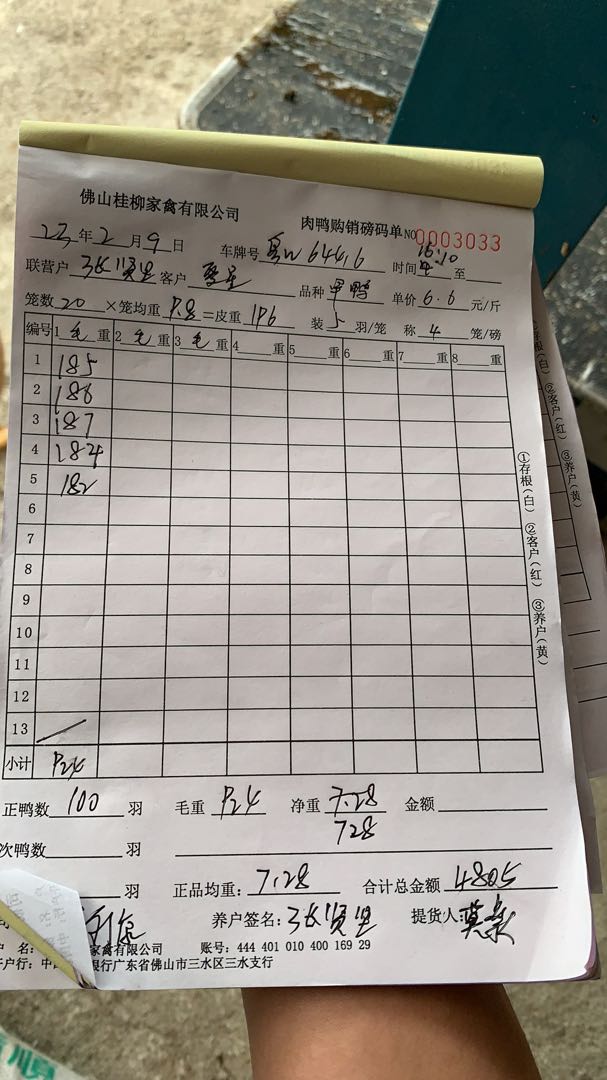 佛山桂柳家禽有限公司
肉鸭购销磅码单 NO 0003033
23年2月9日 车牌号 粤W 644.6 时间 16:10 至
联营户 张贤坚 客户 品种 甲鸭 单价 6.6 元/斤
笼数 20 ×笼均重 9.8 =皮重 196 装 5 羽/笼 称 4 笼/磅
编号 1 毛 重 2 毛 重 3 毛 重 4 重 5 重 6 重 7 重 8 重
1 185
2 186
3 187
4 184
5 182
6
7
8
9
10
11
12
13
小计 924
正鸭数 100 羽 毛重 924 净重 7.28 金额
728
次鸭数 羽
羽 正品均重: 7.28 合计总金额 4805
养户签名: 张贤坚 提货人:
名: 家禽有限公司 账号: 444 401 010 400 169 29
户行: 中 银行广东省佛山市三水区三水支行
①存根(白) ②客户(红) ③养户(黄)
②客户(红) ③养户(黄)